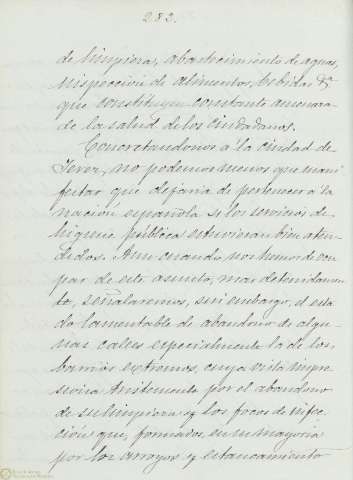 283.
de limpieza, abastecimiento de aguas,
inspección de alimentos, bebidas &ª
que constituyen constante amenaza
de la salud de los ciudadanos.
Concretandonos a la ciudad de
Jerez, no podemos menos que mani
festar que dejaria de pertenecer a la
nación española si los servicios de
higiene pública estuvieran bien aten
didos. Aun cuando nos hemos de ocu
par de este asunto, mas detenidamen
te, señalaremos, sin embargo, el esta
do lamentable de abandono de algu
nas calles especialmente la de los
barrios extremos, cuya vista impre
siona tristemente por el abandono
de su limpieza y los focos de infec
ción que, formados, en su mayoria
por los arroyos y estancamiento